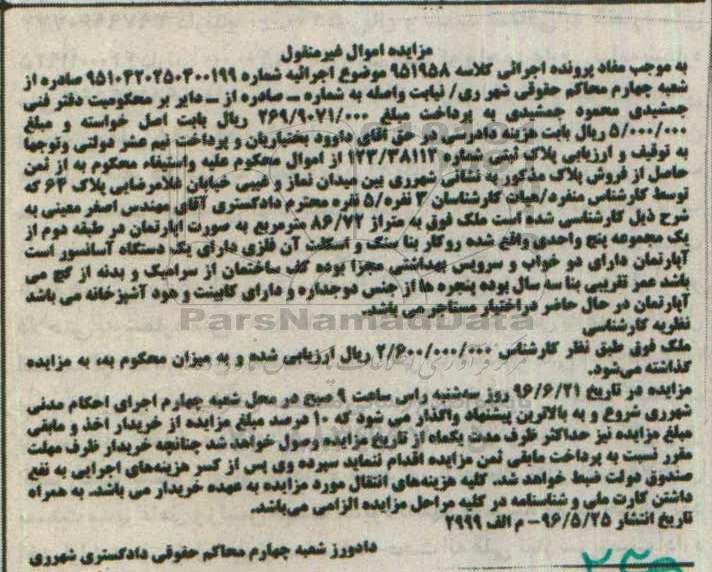 مزایده اموال غیرمنقول
به موجب مفاد پرونده اجرائی کلاسه ۹۵۱۹۵۸ موضوع اجرائیه شماره ۹۵۱۰۴۲۰۲۵۰۴۰۰۱۹۹ صادره از
شعبه چهارم محاکم حقوقی شهر ری/ نیابت واصله به شماره ــ صادره از ــ دایر بر محکومیت دفتر فنی
جمشیدی محمود جمشیدی به پرداخت مبلغ ۲۶۹/۹۰۷۱/۰۰۰ ریال بابت اصل خواسته و مبلغ
۵/۰۰۰/۰۰۰ ریال بابت هزینه دادرسی در حق آقای داوود بختیاریان و پرداخت نیم عشر دولتی وتوجها
به توقیف و ارزیابی پلاک ثبتی شماره ۱۲۳/۳۸۱۱۲ از اموال محکوم علیه واستیفاء محکوم به از ثمن
حاصل از فروش پلاک مذکور به نشانی شهرری بین میدان نماز و غیبی خیابان غلامرضایی پلاک ۶۳ که
توسط کارشناس منفرد/هیات کارشناسان ۳ نفره/۵ نفره محترم دادگستری آقای مهندس اصغر معینی به
شرح ذیل کارشناسی شده است ملک فوق به متراژ ۸۶/۷۲ مترمربع به صورت آپارتمان در طبقه دوم از
یک مجموعه پنج واحدی واقع شده روکار بنا سنگ و اسکلت آن فلزی دارای یک دستگاه آسانسور است
آپارتمان دارای دو خواب و سرویس بهداشتی مجزا بوده کف ساختمان از سرامیک و بدنه از گچ می
باشد عمر تقریبی بنا سه سال بوده پنجره ها از جنس دوجداره و دارای کابینت و هود آشپزخانه می باشد
آپارتمان در حال حاضر دراختیار مستاجر می باشد.
ParsNamadData
نظریه کارشناسی
ملک فوق طبق نظر کارشناس ۲/۶۰۰/۰۰۰/۰۰۰ ریال ارزیابی شده و به میزان محکوم به، به مزایده
گذاشته می‌شود.
مزایده در تاریخ ۹۶/۶/۲۱ روز سه‌شنبه راس ساعت ۹ صبح در محل شعبه چهارم اجرای احکام مدنی
شهرری شروع و به بالاترین پیشنهاد واگذار می شود که ۱۰ درصد مبلغ مزایده از خریدار اخذ و مابقی
مبلغ مزایده نیز حداکثر ظرف مدت یکماه از تاریخ مزایده وصول خواهد شد چنانچه خریدار ظرف مهلت
مقرر نسبت به پرداخت مابقی ثمن مزایده اقدام ننماید سپرده وی پس از کسر هزینه‌های اجرایی به نفع
صندوق دولت ضبط خواهد شد. کلیه هزینه‌های انتقال مورد مزایده به عهده خریدار می باشد. به همراه
داشتن کارت ملی و شناسنامه در کلیه مراحل مزایده الزامی می‌باشد.
تاریخ انتشار ۹۶/۵/۲۵- م الف ۲۹۹۹
دادورز شعبه چهارم محاکم حقوقی دادگستری شهرری